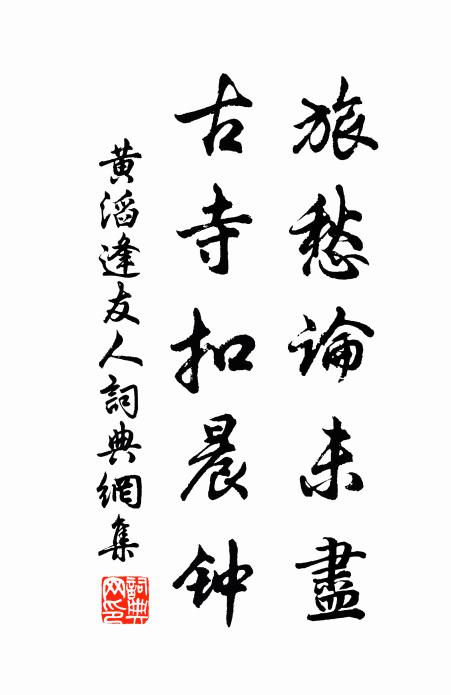 旅愁論未盡
古寺扣晨钟
黄滔逢友人詞典網集
詞典網印